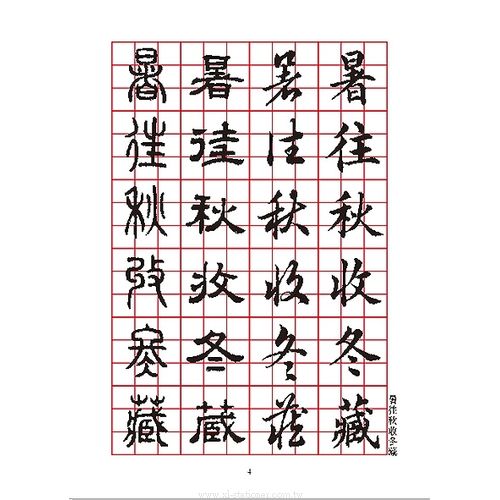 暑 暑 暑 暑
往 往 往 往
秋 秋 秋 秋
收 收 收 收
冬 冬 冬 冬
藏 藏 藏 藏
暑往秋收冬藏
4